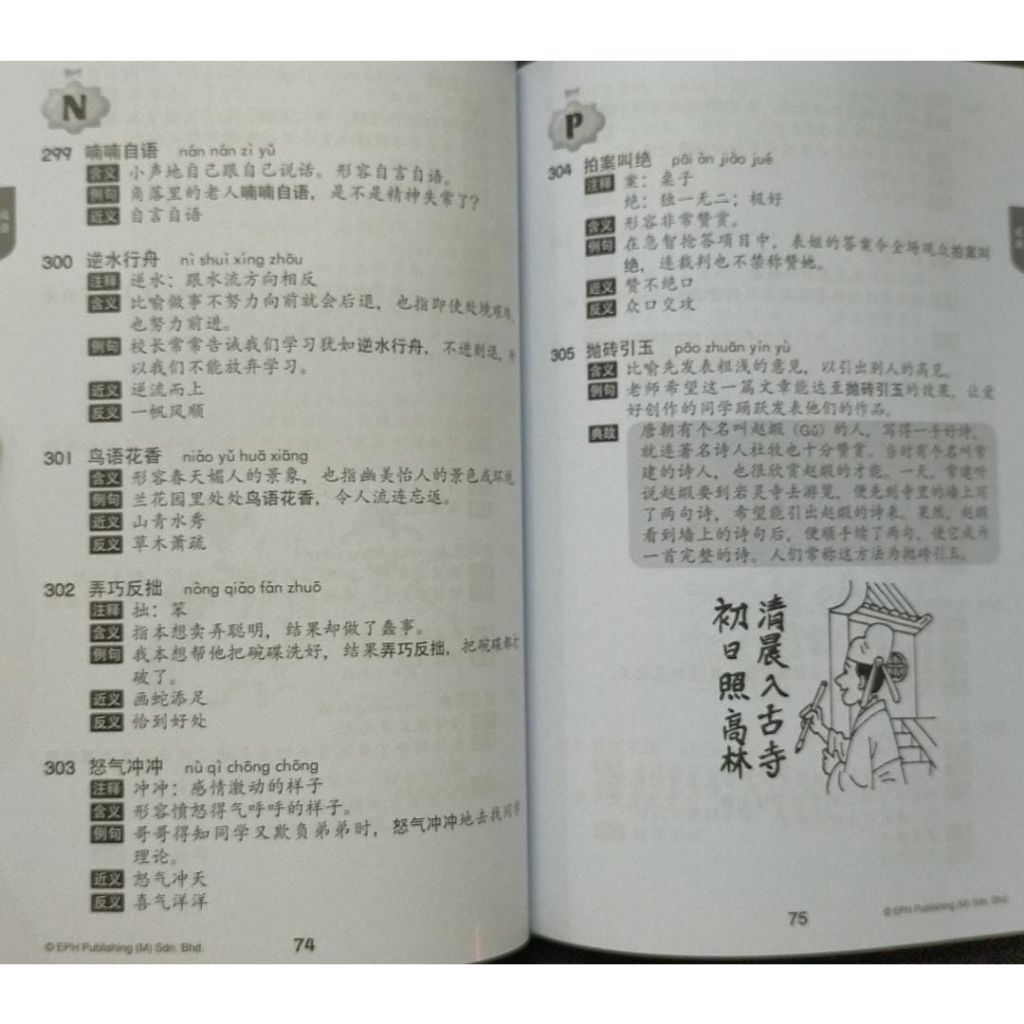 N
299 喃喃自语 nán nán zì yǔ
含义 小声地自己跟自己说话。形容自言自语。
例句 角落里的老人喃喃自语，是不是精神失常了？
近义 自言自语
300 逆水行舟 nì shuǐ xíng zhōu
注释 逆水：跟水流方向相反
含义 比喻做事不努力向前就会后退，也指即使处境艰难，
也努力前进。
例句 校长常常告诫我们学习犹如逆水行舟，不进则退，所
以我们不能放弃学习。
近义 逆流而上
反义 一帆风顺
301 鸟语花香 niǎo yǔ huā xiāng
含义 形容春天媚人的景象，也指幽美怡人的景色或环境
例句 兰花园里处处鸟语花香，令人流连忘返。
近义 山青水秀
反义 草木萧疏
302 弄巧反拙 nòng qiǎo fǎn zhuō
注释 拙：笨
含义 指本想卖弄聪明，结果却做了蠢事。
例句 我本想帮他把碗碟洗好，结果弄巧反拙，把碗碟都打
破了。
近义 画蛇添足
反义 恰到好处
303 怒气冲冲 nù qì chōng chōng
注释 冲冲：感情激动的样子
含义 形容愤怒得气呼呼的样子。
例句 哥哥得知同学又欺负弟弟时，怒气冲冲地去找同学
理论。
近义 怒气冲天
反义 喜气洋洋
© EPH Publishing (M) Sdn. Bhd.
74
P
304 拍案叫绝 pāi àn jiào jué
注释 案：桌子
绝：独一无二；极好
含义 形容非常赞赏。
例句 在急智抢答项目中，表姐的答案令全场观众拍案叫
绝，连裁判也不禁称赞她。
近义 赞不绝口
反义 众口交攻
305 抛砖引玉 pāo zhuān yǐn yù
含义 比喻先发表粗浅的意见，以引出别人的高见。
例句 老师希望这一篇文章能达至抛砖引玉的效果，让爱
好创作的同学踊跃发表他们的作品。
典故 唐朝有个名叫赵嘏（Gǔ）的人，写得一手好诗，
就连著名诗人杜牧也十分赞赏。当时有个名叫常
建的诗人，也很欣赏赵嘏的才能。一天，常建听
说赵嘏要到岩灵寺去游览，便先到寺里的墙上写
了两句诗，希望能引出赵嘏的诗来。果然，赵嘏
看到墙上的诗句后，便顺手续了两句，使它成为
一首完整的诗。人们常称这方法为抛砖引玉。
清晨入古寺
初日照高林
75
© EPH Publishing (M) Sdn. Bhd.